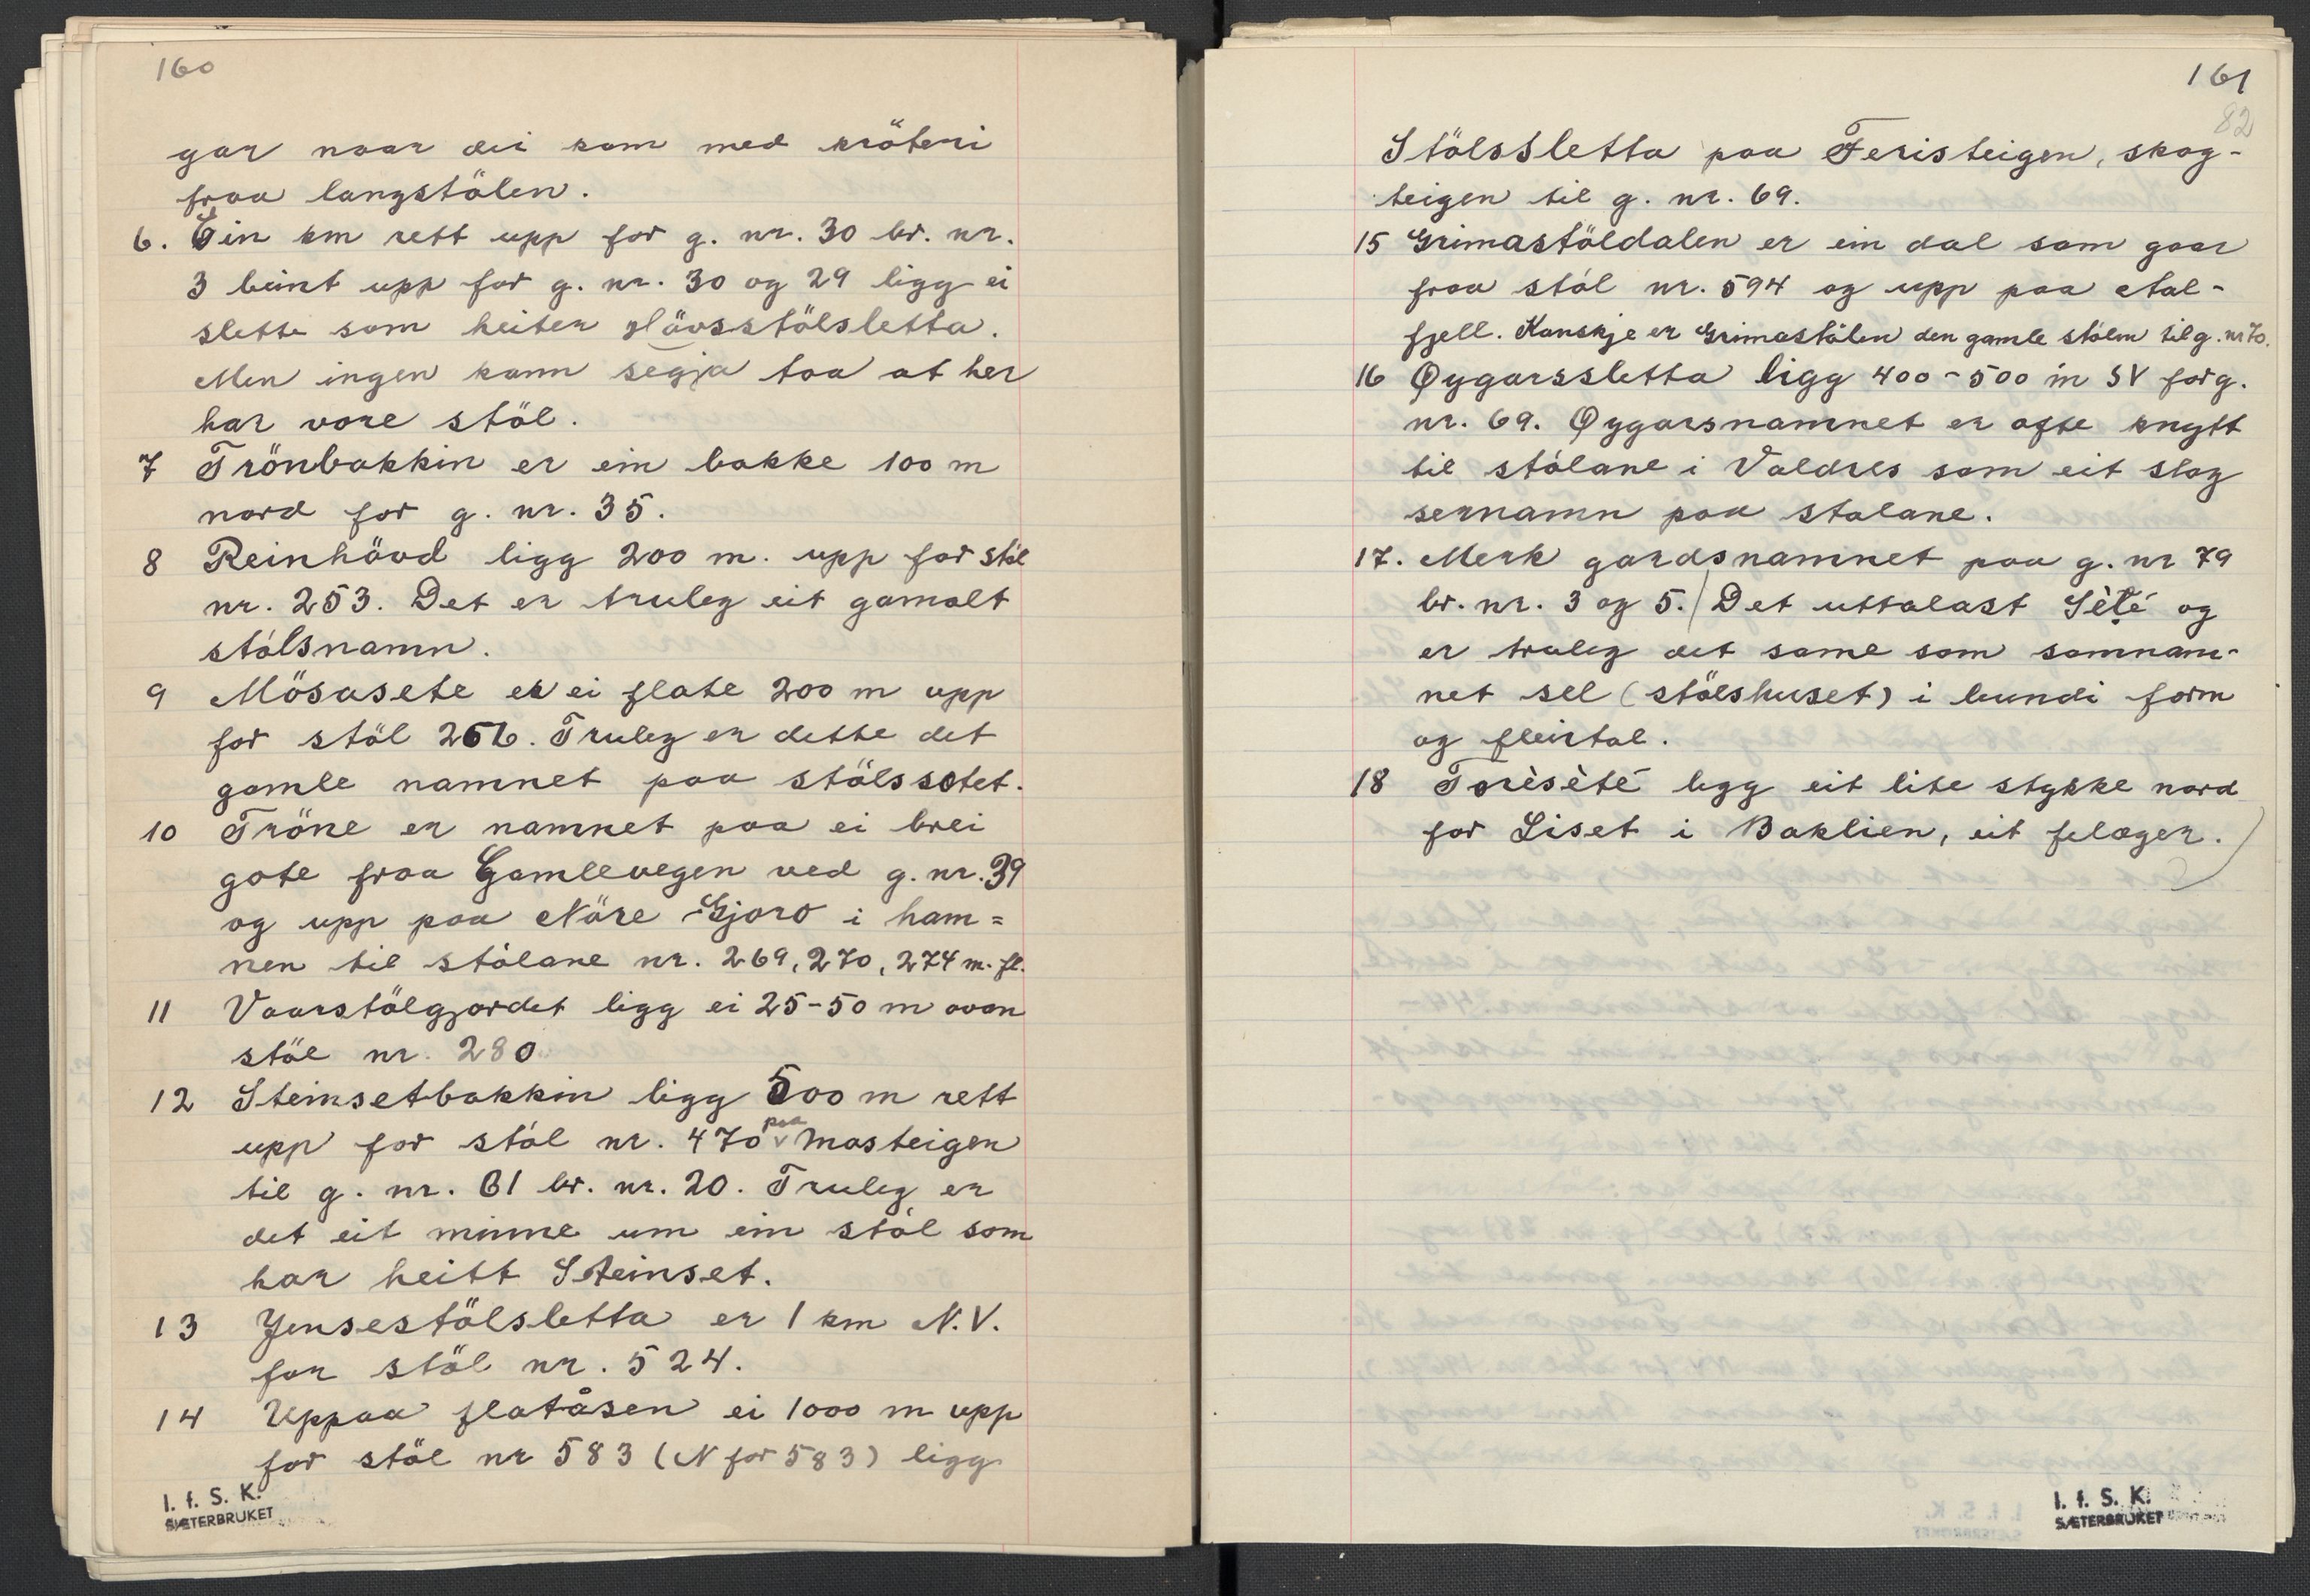 160
gar naar dei kom med kröteri
fraa langstölen.
6. Ein km rett upp for g. nr. 30 br. nr.
3 beint upp for g. nr. 30 og 29 ligg ei
slette som heiter Hövsstölsletta.
Men ingen kann segja taa at her
har vore stöl.
7 Trönbakkin er ein bakke 100 m
nord for g. nr. 35.
8 Reinhövd ligg 200 m. upp for stöl
nr. 253. Det er truleg eit gamalt
stölsnamn.
9 Mösasete er ei flate 200 m upp
for stöl 256. Truleg er dette det
gamle namnet paa stölssetet.
10 Tröne er namnet paa ei brei
gote fraa Gamlevegen ved g. nr. 39
og upp paa Nöre Gjoro i ham=
nen til stölane nr. 269, 270, 274 m. fl.
11 Vaarstölgjordet ligg ei 25-50 m ovan
stöl nr. 280
12 Steinsetbakkin ligg 500 m rett
upp for stöl nr. 470 paa Masteigen
til g. nr. 61 br. nr. 20. Truleg er
det eit minne um ein stöl som
har heitt Steinset.
13 Jensestölsletta er 1 km N.V.
for stöl nr. 524.
14 Uppaa flatåsen ei 1000 m upp
for stöl nr 583 (N for 583) ligg
I. f. S. K.
SÆTERBRUKET
161
82
Stölssletta paa Feristeigen, skog-
teigen til g. nr. 69.
15 Grimastöldalen er ein dal som gaar
fraa stöl nr. 594 og upp paa Mal-
fjell. Kanskje er Grimastölen den gamle stölen til g. nr 70.
16 Øygarssletta ligg 400-500 m SV for g.
nr. 69. Øygarsnamnet er ofte knytt
til stölane i Valdres som eit slag
sernamn paa stølane.
17. Merk gardsnamnet paa g. nr 79
br. nr. 3 og 5. Det uttalast Sèlé og
er truleg det same som samnam-
net sel (stölshuset) i bundi form
og fleirtal.
18 Torèsèté ligg eit lite stykke nord
for Liset i Baklien, eit felæger.
I. f. S. K.
SÆTERBRUKET